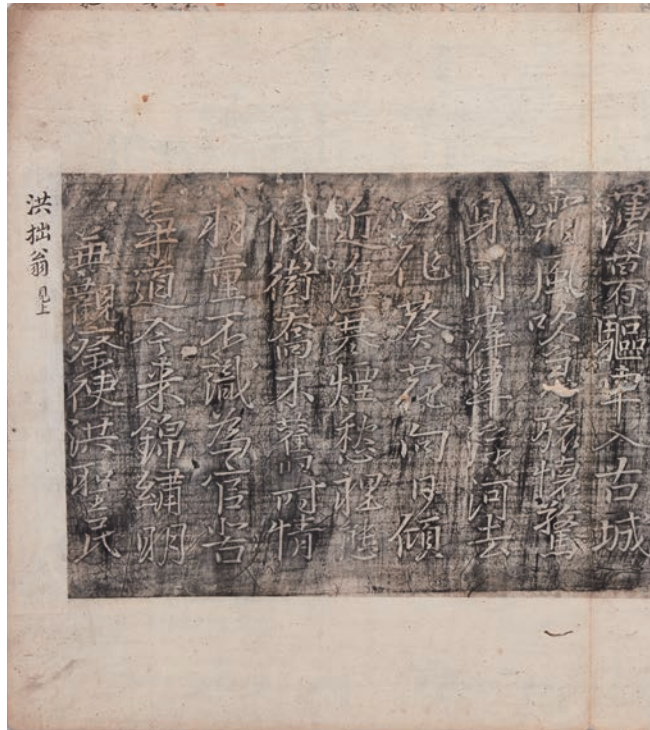 薄暮驅車入古城
霜風吹急旅懷驚
身同萍葉沿河去
心作葵花向日傾
近海寒煙愁裡態
傍街喬木舊時情
村童不識為官苦
爭道今来錦繡明
兼觀察使洪聖民
洪拙翁 見上